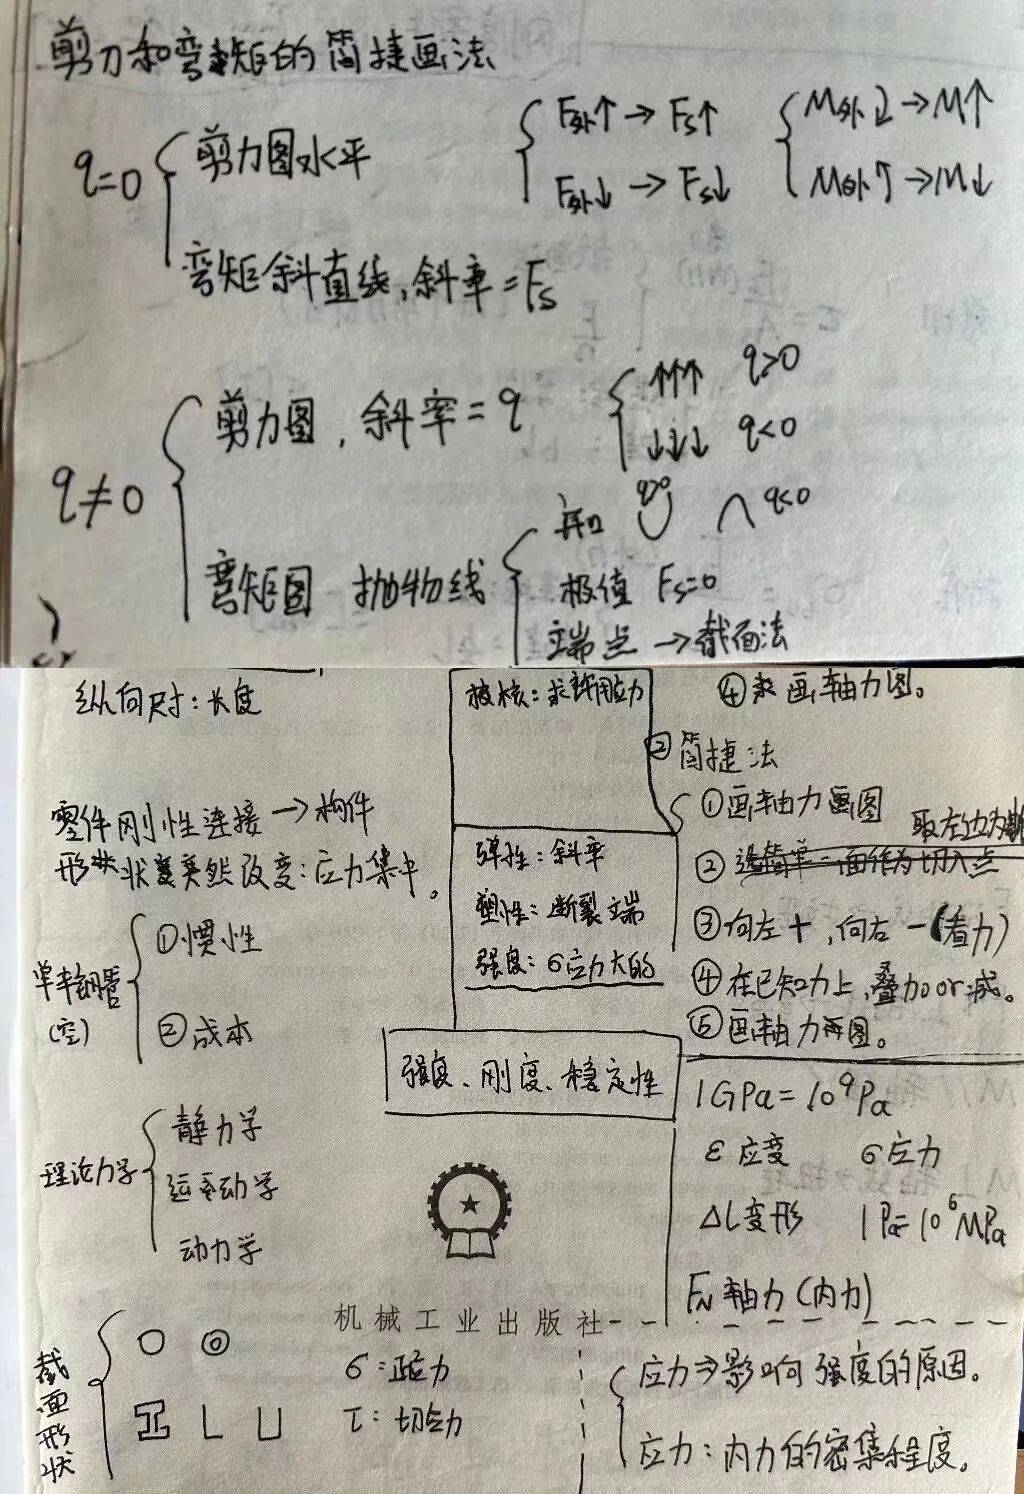 剪力和弯矩的简捷画法
q=0
剪力图水平
弯矩斜直线,斜率=Fs
F外↑→Fs↑
F外↓→Fs↓
M外→M↑
M外→M↓
q≠0
剪力图,斜率=q
↑↑↑ q>0
↓↓↓ q<0
弯矩图 抛物线
q>0 q<0
极值 Fs=0
端点→截面法
纵向尺寸:长度
零件刚性连接→构件
形状突然改变:应力集中。
(空)
①惯性
②成本
理论力学
静力学
运动学
动力学
截面形状
校核:求许用应力
弹性:斜率
塑性:断裂端
强度:σ应力大的
强度、刚度、稳定性
机械工业出版社
σ:正应力
τ:切应力
④求画轴力图。
②简捷法
①画轴力图
取左边为
②选简单一面作为切入点
③向左+,向右-(看力)
④在已知力上,叠加or减。
⑤画轴力图。
1GPa=10⁹Pa
ε应变 σ应力
ΔL变形 1Pa=10⁶MPa
FN轴力(内力)
应力⇒影响强度的原因。
应力:内力的密集程度。